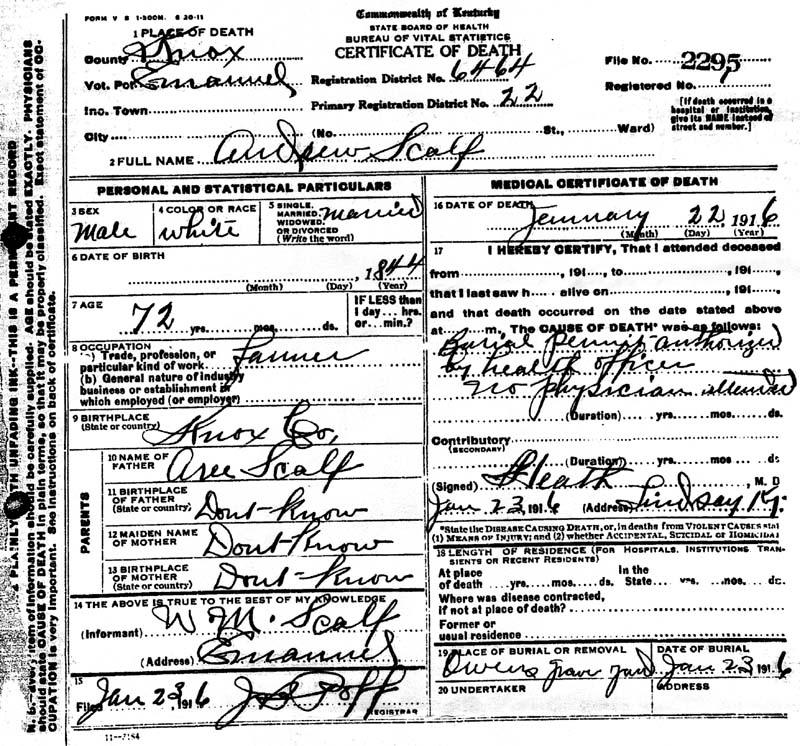 FORM V S 1-300M. 6 20-11
Commonwealth of Kentucky
STATE BOARD OF HEALTH
BUREAU OF VITAL STATISTICS
CERTIFICATE OF DEATH
1 PLACE OF DEATH
County Knox
Vot. Pct Emanuel
Inc. Town
City (No. St., Ward)
Registration District No. 6464
Primary Registration District No. 22
File No. 2295
Registered No.
[If death occurred in a
hospital or institution,
give its NAME instead of
street and number.]
2 FULL NAME Andrew Scalf
PERSONAL AND STATISTICAL PARTICULARS
3 SEX
Male
4 COLOR OR RACE
White
5 SINGLE,
MARRIED,
WIDOWED,
OR DIVORCED
(Write the word)
Married
6 DATE OF BIRTH
, 1844
(Month) (Day) (Year)
7 AGE
72 yrs. mos. ds.
IF LESS than
1 day... hrs.
or... min.?
8 OCCUPATION
(a) Trade, profession, or
particular kind of work Farmer
(b) General nature of industry
business or establishment in
which employed (or employer)
9 BIRTHPLACE
(State or country) Knox Co,
PARENTS
10 NAME OF
FATHER Scalf
11 BIRTHPLACE
OF FATHER
(State or country) Dont-Know
12 MAIDEN NAME
OF MOTHER Dont-Know
13 BIRTHPLACE
OF MOTHER
(State or country) Dont-Know
14 THE ABOVE IS TRUE TO THE BEST OF MY KNOWLEDGE
(Informant) W M. Scalf
(Address) Emanuel
15
Filed Jan 23, 1916 Poff
REGISTRAR
11--3184
MEDICAL CERTIFICATE OF DEATH
16 DATE OF DEATH
Jennuary 22, 1916
(Month) (Day) (Year)
17 I HEREBY CERTIFY, That I attended deceased
from , 191 , to , 191 ,
that I last saw h alive on , 191 ,
and that death occurred on the date stated above
at m., The CAUSE OF DEATH* was as follows:
Burial Permit authorized
by health officer
No physician attended
(Duration) yrs. mos. ds.
Contributory
(SECONDARY)
(Duration) yrs. mos. ds.
(Signed) Heath, M. D
Jan 23, 1916 (Address) Lindsay Ky.
*State the DISEASE CAUSING DEATH, or, in deaths from VIOLENT CAUSES stat
(1) MEANS OF INJURY; and (2) whether ACCIDENTAL, SUICIDAL or HOMICIDAL
18 LENGTH OF RESIDENCE (FOR HOSPITALS, INSTITUTIONS, TRAN-
SIENTS OR RECENT RESIDENTS)
At place In the
of death yrs. mos. ds. State yrs. mos. ds.
Where was disease contracted,
if not at place of death?
Former or
usual residence
19 PLACE OF BURIAL OR REMOVAL
Owens Grave Yard
DATE OF BURIAL
Jan 23, 1916
20 UNDERTAKER
ADDRESS
PLAINLY WITH UNFADING INK--THIS IS A PERMANENT RECORD
N. B.--Every item of information should be carefully supplied. AGE should be stated EXACTLY. PHYSICIANS
should state CAUSE OF DEATH in plain terms, so that it may be properly classified. Exact statement of OC-
CUPATION is very important. See instructions on back of certificate.